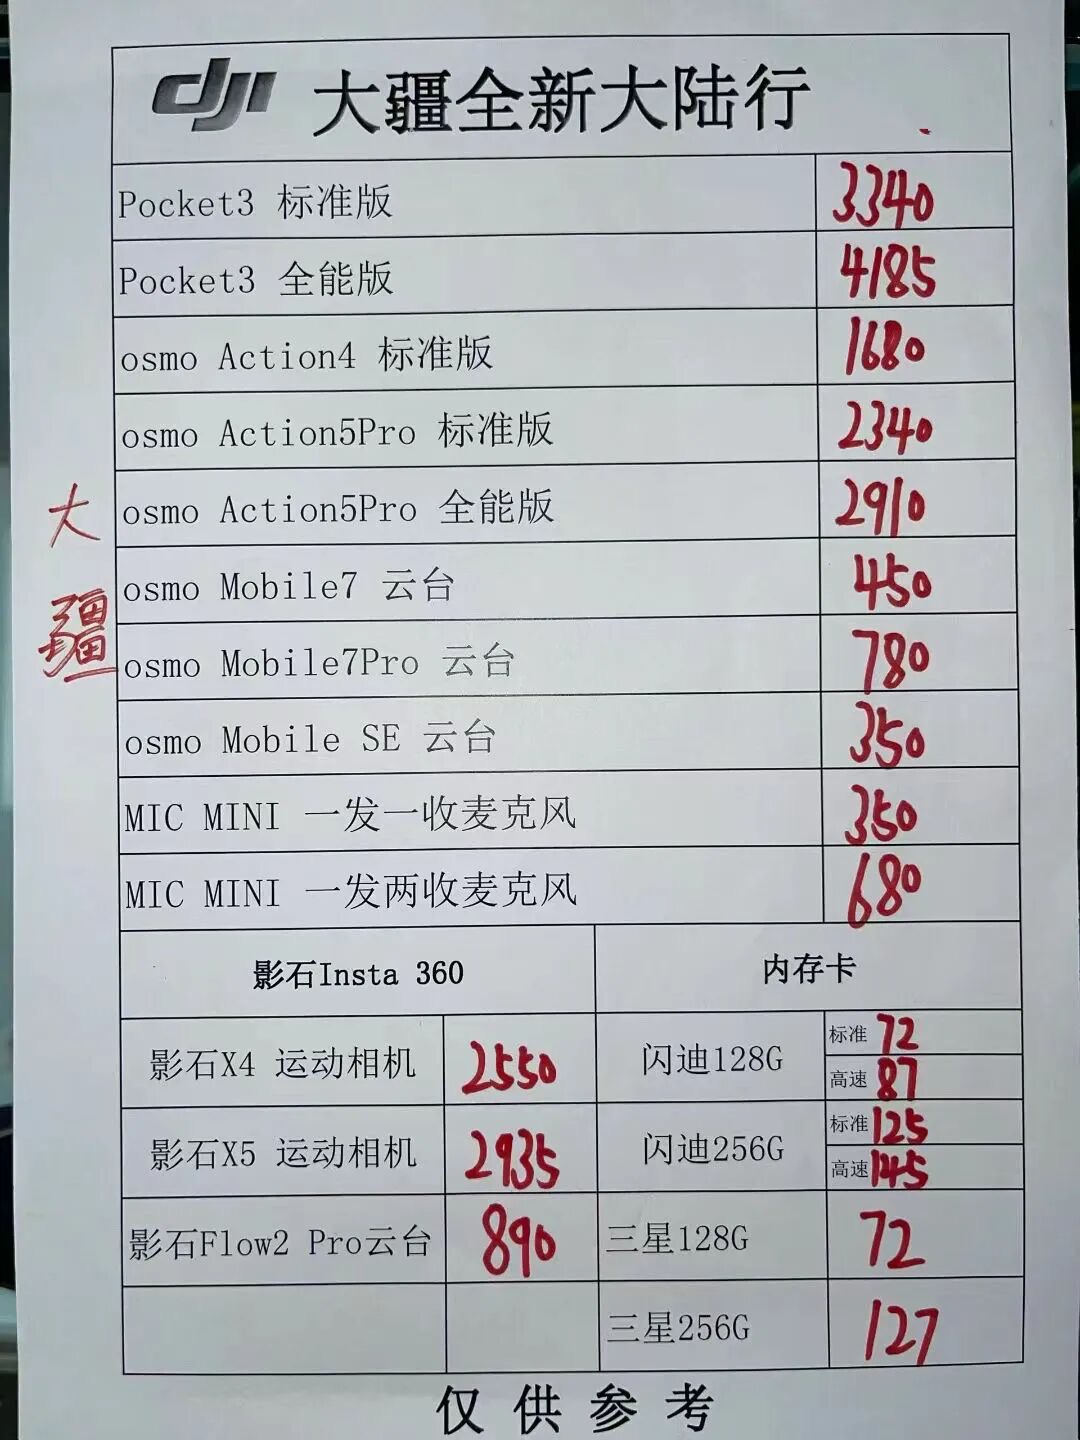 dji 大疆全新大陆行
Pocket3 标准版 3340
Pocket3 全能版 4185
osmo Action4 标准版 1680
osmo Action5Pro 标准版 2340
osmo Action5Pro 全能版 2910
osmo Mobile7 云台 450
osmo Mobile7Pro 云台 780
osmo Mobile SE 云台 350
MIC MINI 一发一收麦克风 350
MIC MINI 一发两收麦克风 680
大疆
影石Insta 360 内存卡
影石X4 运动相机 2550 闪迪128G 标准 72
高速 87
影石X5 运动相机 2935 闪迪256G 标准 125
高速 145
影石Flow2 Pro云台 890 三星128G 72
三星256G 127
仅供参考